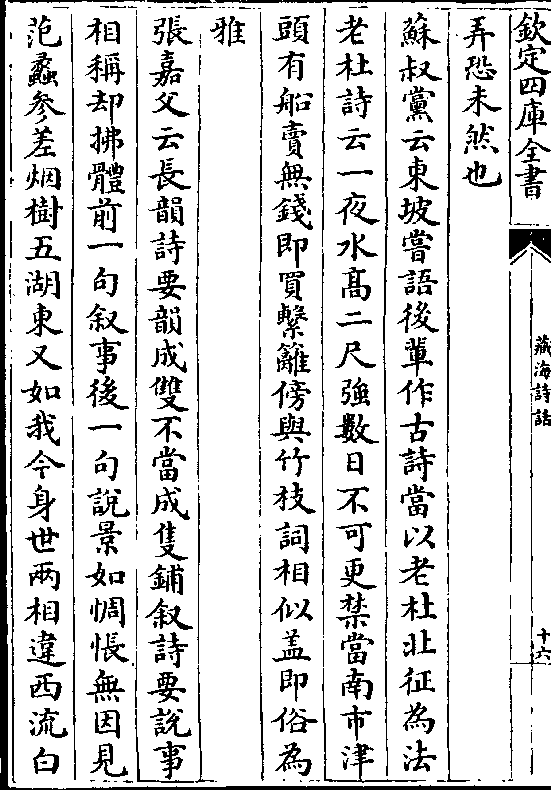 欽定四庫全書
藏海詩話
十六
弄恐未然也
蘇叔黨云東坡嘗語後輩作古詩當以老杜北征為法
老杜詩云一夜水高二尺強數日不可更禁當南市津
頭有船賣無錢即買繫籬傍與竹枝詞相似盖即俗為
雅
張嘉父云長韻詩要韻成雙不當成隻鋪叙詩要說事
相稱却拂體前一句叙事後一句說景如惆悵無因見
范蠡參差烟樹五湖東又如我今身世兩相違西流白